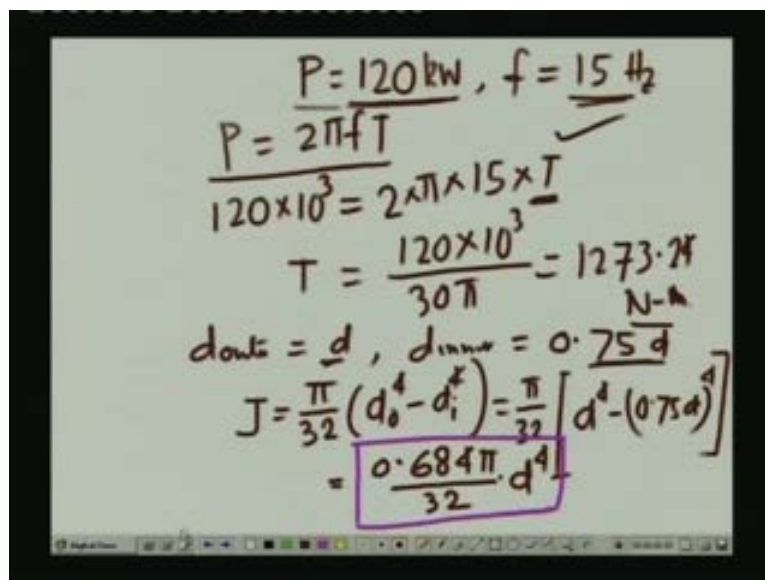 P = 120 kW, f = 15 Hz
P = 2πfT
120×10³ = 2×π×15×T
T = 120×10³ / 30π = 1273.24 N-m
d outer = d, d inner = 0.75 d
J = π/32 (d₀⁴ - dᵢ⁴) = π/32 [d⁴ - (0.75d)⁴]
= 0.684π/32 · d⁴